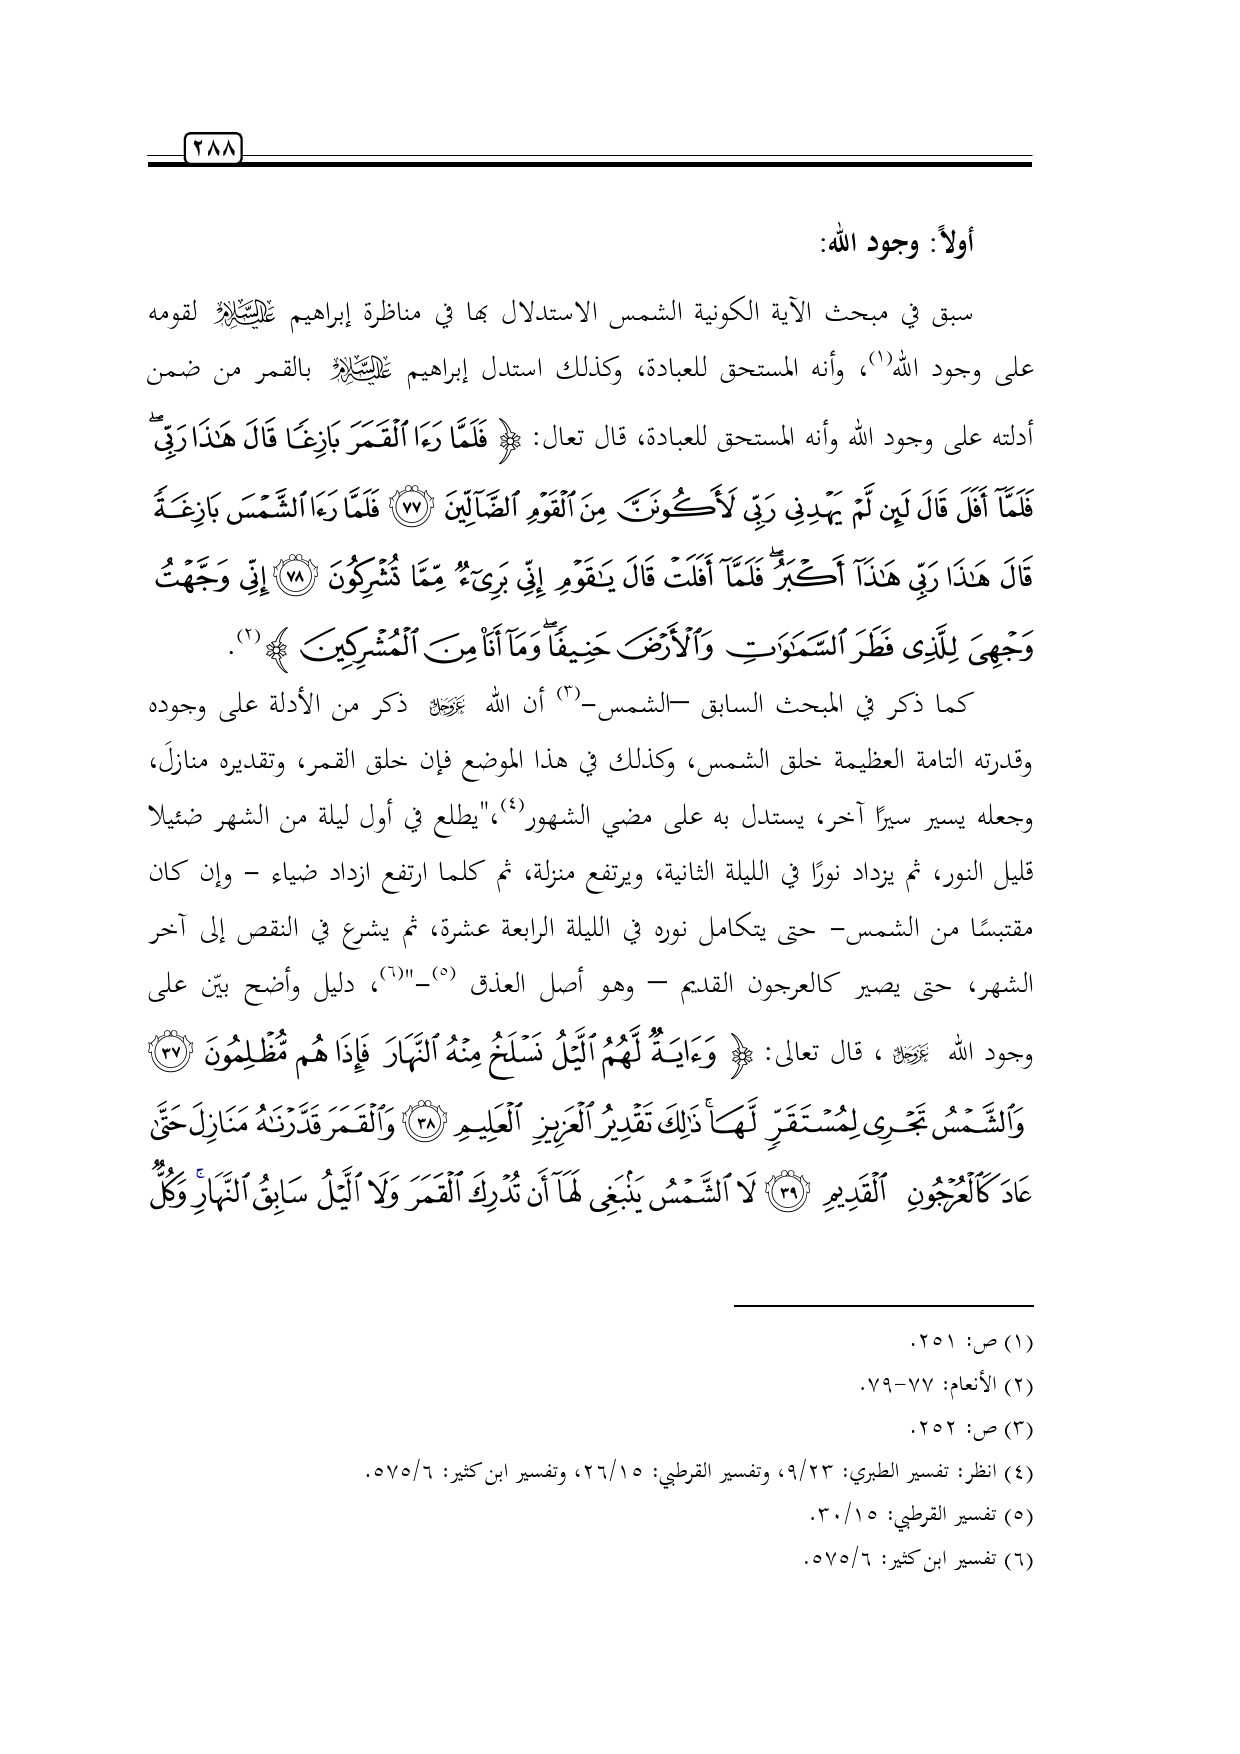 ٢٨٨
أولاً: وجود الله:
سبق في مبحث الآية الكونية الشمس الاستدلال بها في مناظرة إبراهيم عليه السلام لقومه
على وجود الله(١)، وأنه المستحق للعبادة، وكذلك استدل إبراهيم عليه السلام بالقمر من ضمن
أدلته على وجود الله وأنه المستحق للعبادة، قال تعال: ﴿ فَلَمَّا رَءَا ٱلْقَمَرَ بَازِغًا قَالَ هَٰذَا رَبِّي ۖ
فَلَمَّآ أَفَلَ قَالَ لَئِن لَّمْ يَهْدِنِى رَبِّى لَأَكُونَنَّ مِنَ ٱلْقَوْمِ ٱلضَّآلِّينَ ٧٧ فَلَمَّا رَءَا ٱلشَّمْسَ بَازِغَةً
قَالَ هَٰذَا رَبِّى هَٰذَآ أَكْبَرُ ۖ فَلَمَّآ أَفَلَتْ قَالَ يَٰقَوْمِ إِنِّى بَرِىٓءٌ مِّمَّا تُشْرِكُونَ ٧٨ إِنِّى وَجَّهْتُ
وَجْهِىَ لِلَّذِى فَطَرَ ٱلسَّمَٰوَٰتِ وَٱلْأَرْضَ حَنِيفًا ۖ وَمَآ أَنَا۠ مِنَ ٱلْمُشْرِكِينَ ﴾(٢).
كما ذكر في المبحث السابق –الشمس–(٣) أن الله عز وجل ذكر من الأدلة على وجوده
وقدرته التامة العظيمة خلق الشمس، وكذلك في هذا الموضع فإن خلق القمر، وتقديره منازلَ،
وجعله يسير سيرًا آخر، يستدل به على مضي الشهور(٤)،"يطلع في أول ليلة من الشهر ضئيلا
قليل النور، ثم يزداد نورًا في الليلة الثانية، ويرتفع منزلة، ثم كلما ارتفع ازداد ضياء – وإن كان
مقتبسًا من الشمس– حتى يتكامل نوره في الليلة الرابعة عشرة، ثم يشرع في النقص إلى آخر
الشهر، حتى يصير كالعرجون القديم – وهو أصل العذق (٥)–"(٦)، دليل وأضح بيّن على
وجود الله عز وجل ، قال تعالى: ﴿ وَءَايَةٌ لَّهُمُ ٱلَّيْلُ نَسْلَخُ مِنْهُ ٱلنَّهَارَ فَإِذَا هُم مُّظْلِمُونَ ٣٧
وَٱلشَّمْسُ تَجْرِى لِمُسْتَقَرٍّ لَّهَا ۚ ذَٰلِكَ تَقْدِيرُ ٱلْعَزِيزِ ٱلْعَلِيمِ ٣٨ وَٱلْقَمَرَ قَدَّرْنَٰهُ مَنَازِلَ حَتَّىٰ
عَادَ كَٱلْعُرْجُونِ ٱلْقَدِيمِ ٣٩ لَا ٱلشَّمْسُ يَنۢبَغِى لَهَآ أَن تُدْرِكَ ٱلْقَمَرَ وَلَا ٱلَّيْلُ سَابِقُ ٱلنَّهَارِ ۚ وَكُلٌّ
(١) ص: ٢٥١.
(٢) الأنعام: ٧٧-٧٩.
(٣) ص: ٢٥٢.
(٤) انظر: تفسير الطبري: ٩/٢٣، وتفسير القرطبي: ٢٦/١٥، وتفسير ابن كثير: ٥٧٥/٦.
(٥) تفسير القرطبي: ٣٠/١٥.
(٦) تفسير ابن كثير: ٥٧٥/٦.